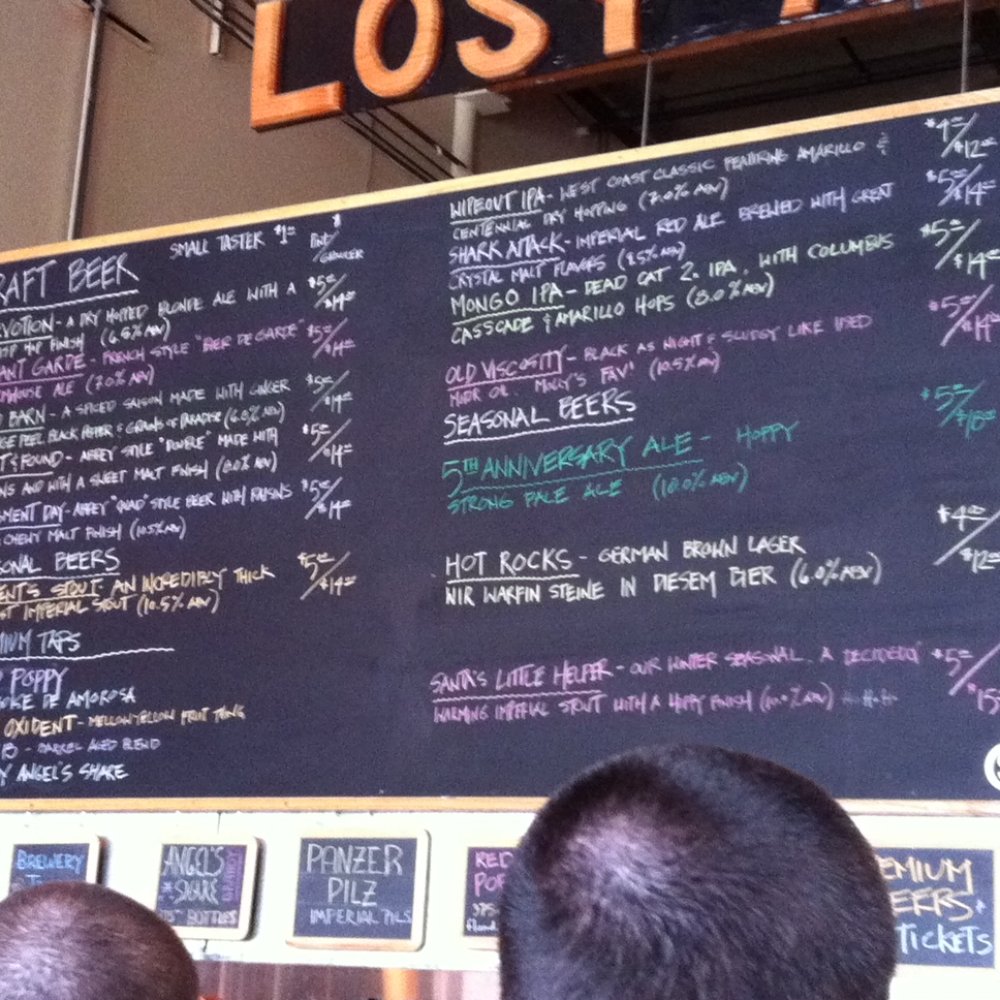 LOST A
SMALL TASTER $1
PINT/
GROWLER
RAFT BEER
VOTION - A DRY HOPPED BLONDE ALE WITH A
HOP FINISH (6.5% ABV)
$5/
$14
ANT GARDE - FRENCH STYLE "BIER DE GARDE"
MHOUSE ALE (7.0% ABV)
$5/
$14
BARN - A SPICED SAISON MADE WITH GINGER
GE PEEL BLACK PEPPER & GRAINS OF PARADISE (6.0% ABV)
$5/
$14
T & FOUND - ABBEY STYLE "DUBBLE" MADE WITH
NS AND WITH A SWEET MALT FINISH (8.0% ABV)
$5/
$14
MENT DAY - ABBEY "QUAD" STYLE BEER WITH RAISINS
CHEWY MALT FINISH (10.5% ABV)
$5/
$14
ONAL BEERS
ENT'S STOUT - AN INCREDIBLY THICK
ST IMPERIAL STOUT (10.5% ABV)
$5/
$14
MIUM TAPS
POPPY
KE DE AMOROSA
OXIDENT - MELLOW YELLOW FRUIT TANG
B - BARREL AGED BLEND
Y ANGEL'S SHARE
WIPEOUT IPA - WEST COAST CLASSIC FEATURING AMARILLO &
CENTENNIAL DRY HOPPING (7.0% ABV)
$4/
$12
SHARK ATTACK - IMPERIAL RED ALE BREWED WITH GREAT
CRYSTAL MALT FLAVORS (8.5% ABV)
$5/
$14
MONGO IPA - DEAD CAT 2. IPA. WITH COLUMBUS
CASSCADE & AMARILLO HOPS (8.0% ABV)
$5/
$14
OLD VISCOSITY - BLACK AS NIGHT & SLUDGY LIKE USED
MOTOR OIL - MOLLY'S FAV' (10.5% ABV)
$5/
$14
SEASONAL BEERS
5TH ANNIVERSARY ALE - HOPPY
STRONG PALE ALE (10.0% ABV)
$5/
HOT ROCKS - GERMAN BROWN LAGER
WIR WARFIN STEINE IN DIESEM BIER (6.0% ABV)
$4/
$12
SANTA'S LITTLE HELPER - OUR WINTER SEASONAL, A DECIDEDLY
WARMING IMPERIAL STOUT WITH A HOPPY FINISH (10.0% ABV)
$5/
$15
BREWERY
ANGEL'S
SHARE
BOTTLES
PANZER
PILZ
IMPERIAL PILS
RED
POP
EMIUM
EERS
TICKETS